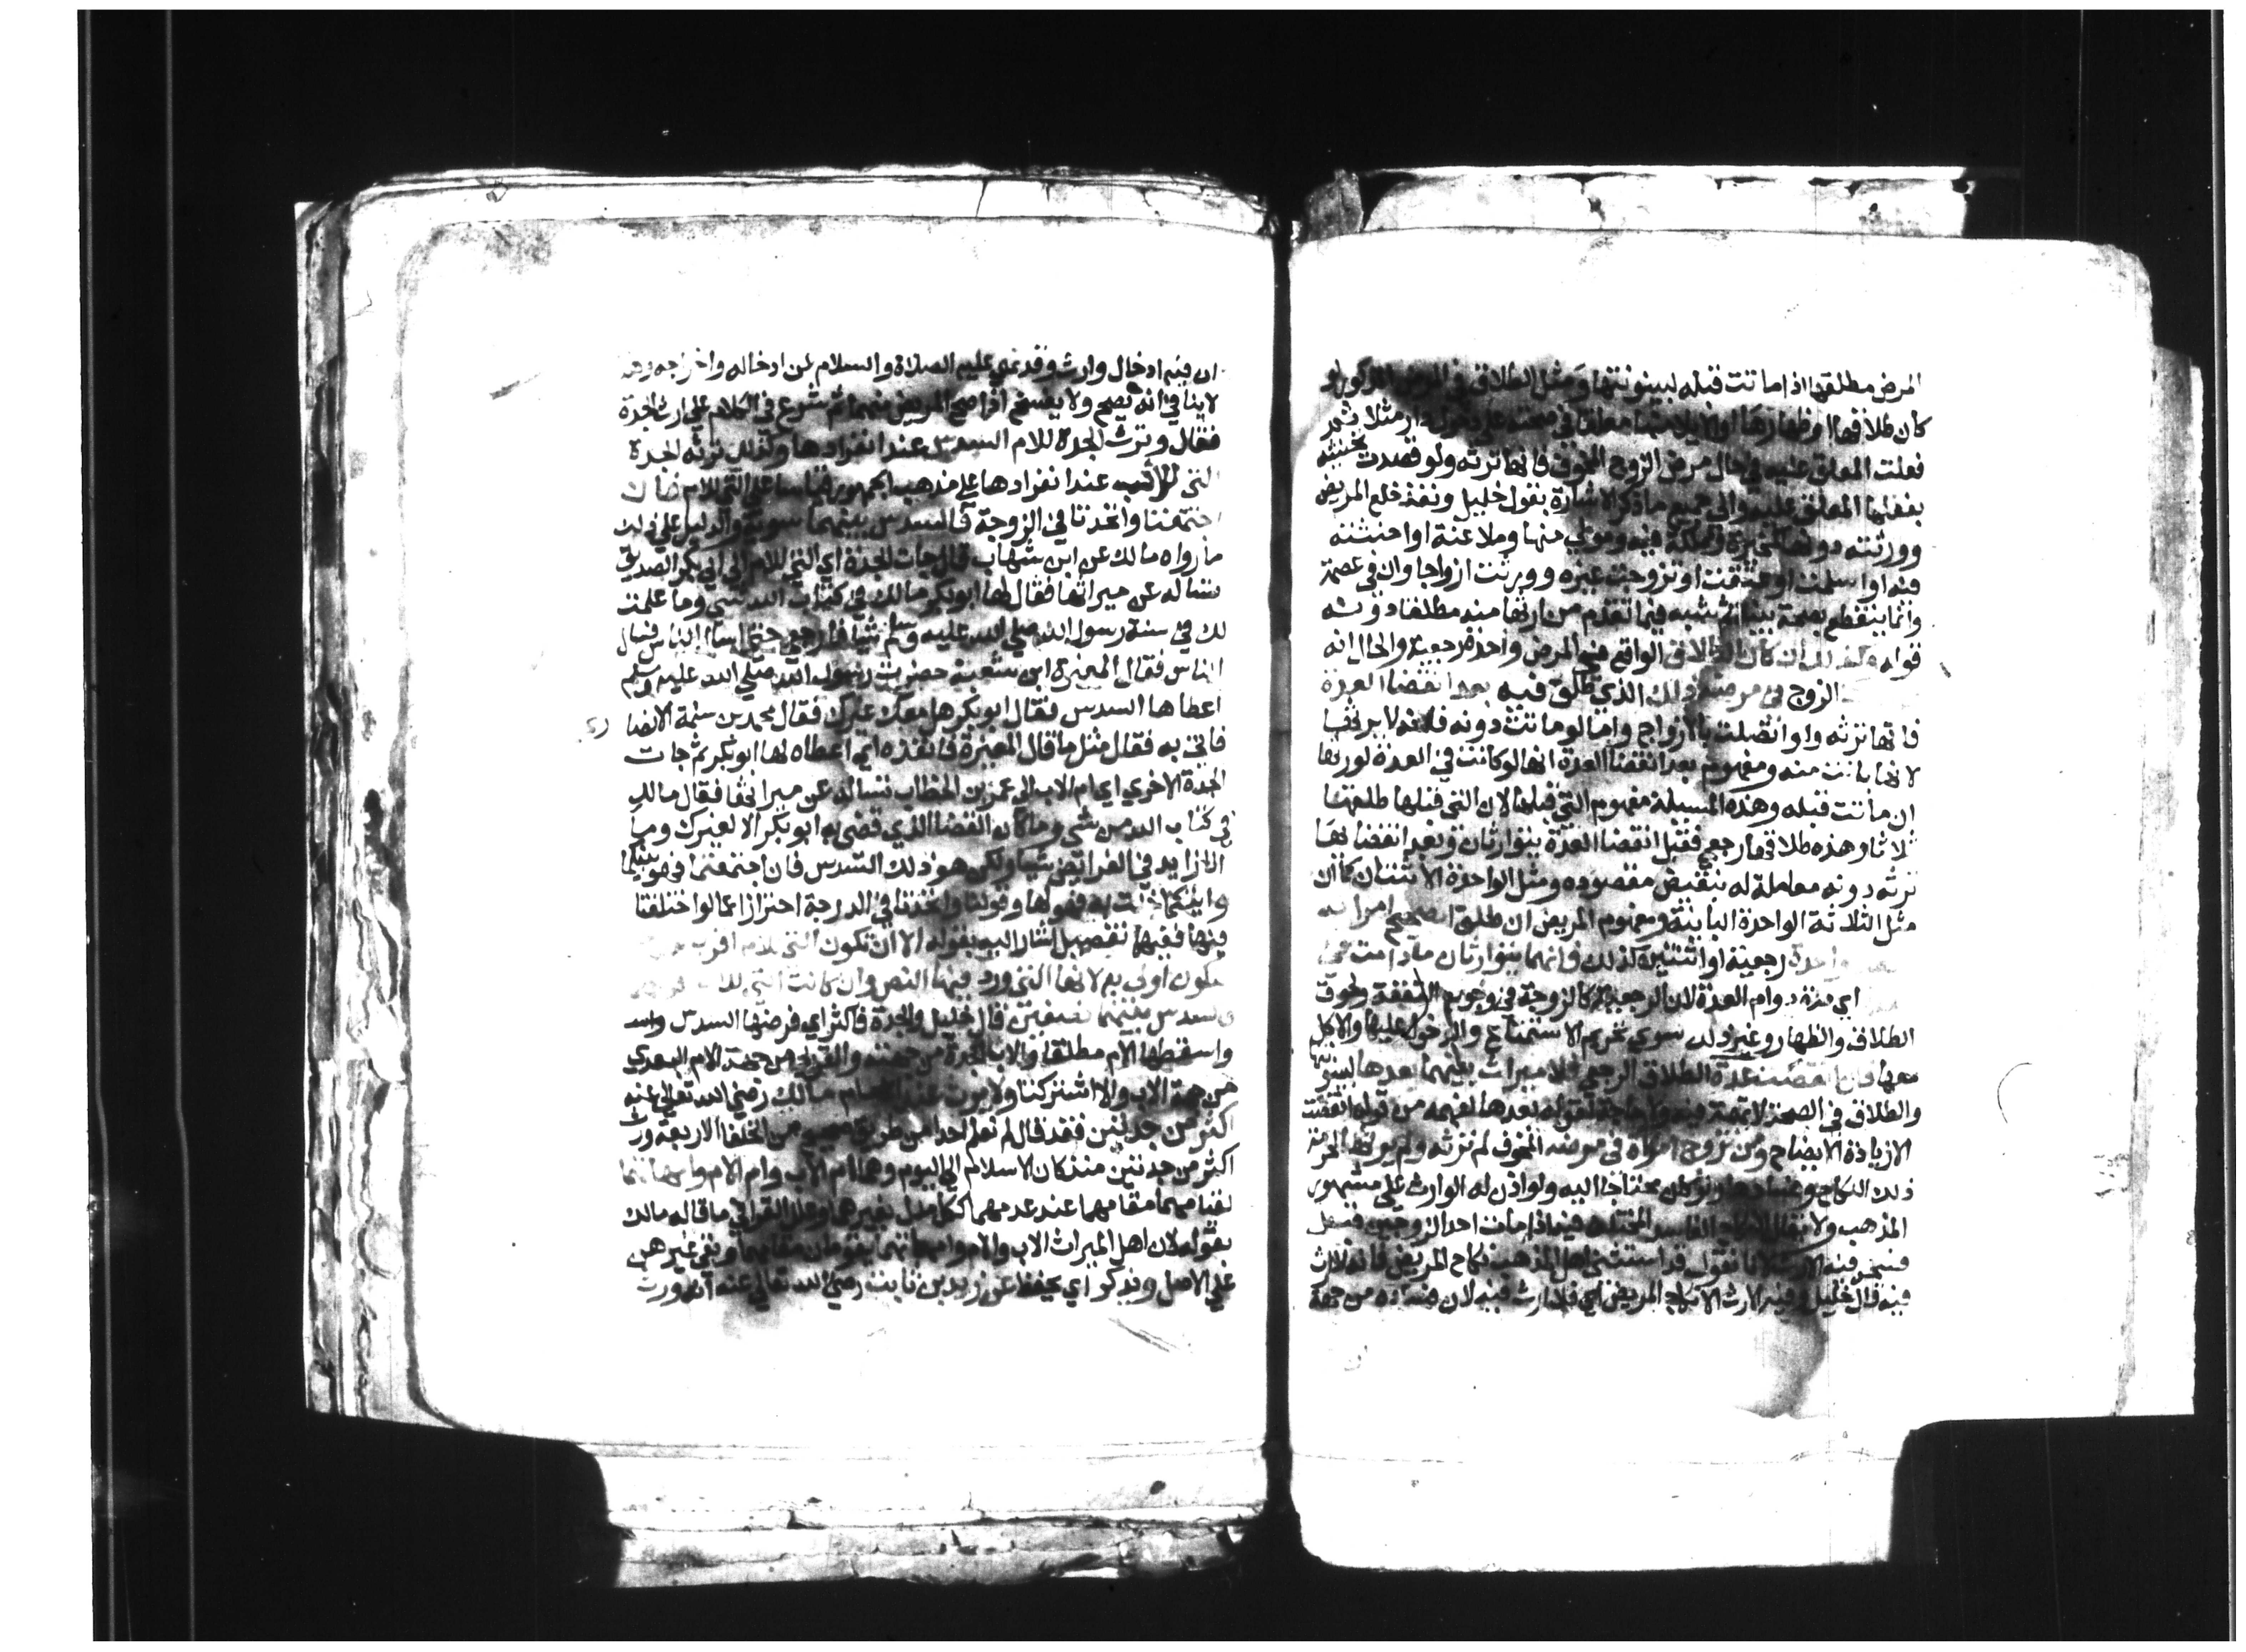 المرض مطلقها اذا ماتت قبله لبينونتها ومثل الطلاق في المرض المذكور لو
كان طلاقها او ظهارها او الايلا منها معلقا في صحته علي دخول دار مثلا ثم
فعلت المعلق عليه في حال مرض الزوج المخوف فانها ترثه ولو قصدت تحنيثه
بفعلها المعلق عليه والي جميع ما ذكر الاشارة بقول خليل ونفذ خلع المريض
وورثته دونها كمخيرة ومملكة فيه ومولي منها وملاعنة او احنثته
فيه او اسلمت او عتقت او تزوجت غيره وورثت ازواجا وان في عصمة
وانما ينقطع بصحة بينة ثم شبه فيما تقدم من ارثها منه مطلقا دونه
قوله وكذلك ان كان الطلاق الواقع في المرض واحدة رجعية والحال انه
الزوج في مرضه ذلك الذي طلق فيه بعد انقضا العدة
فانها ترثه ولو اتصلت بالازواج واما لو ماتت دونه فلا
لانها بانت منه ومفهوم بعد انقضا العدة انها لو كانت في العدة لورثها
ان ماتت قبله وهذه المسيلة مفهوم التي قبلها لان التي قبلها طلقها
ثلاثا وهذه طلاقها رجعي فقبل انقضا العدة يتوارثان وبعد انقضائها
ترثه دونه معاملة له بنقيض مقصوده ومثل الواحدة الاثنتان كما ان
مثل الثلاثة الواحدة الباينة ومفهوم المريض ان طلق الصحيح امراته
واحدة رجعية او اثنتين كذلك فانهما يتوارثان ما دامت في
اي مدة دوام العدة لان الرجعية كالزوجة في وجوب النفقة ولحوق
الطلاق والظهار وغير ذلك سوي تحريم الاستمتاع والدخول عليها والاكل
معها فان انقضت عدة الطلاق الرجعي فلا ميراث بينهما بعدها لبينونتها
والطلاق في الصحة لا تهمة فيه ولا حاجة لقوله بعدها لفهمه من قوله انقضت
الازيادة الايضاح ومن تزوج امراة في مرضه المخوف لم ترثه ولم يرثها لحرمة
ذلك النكاح وفساده ولو كان محتاجا اليه ولو اذن له الوارث علي مشهور
المذهب ولا يقال النكاح الفاسد المختلف فيه اذا مات احد الزوجين قبل
فسخه فيه الارث لانا نقول قد استثني اهل المذهب نكاح المريض فانه لا ارث
فيه قال خليل وفيه الارث الا نكاح المريض اي فلا ارث فيه لان فساده من جهة
ان
ان فيه ادخال وارث وقد نهي عليه الصلاة والسلام عن ادخاله واخراجه
لا ينافي انه يصح ولا يفسخ اذا صح المريض منهما ثم شرع في الكلام علي ارث الجدة
فقال وترث الجدة للام السدس عند انفرادها وكذلك ترثه الجدة
التي للاب عند انفرادها علي مذهب الجمهور قياسا علي التي للام فان
اجتمعتا واتحدتا في الزوجة فالسدس بينهما سوية والدليل علي ذلك
ما رواه مالك عن ابن شهاب قال جات الجدة اي التي للام الي ابي بكر الصديق
تساله عن ميراثها فقال لها ابو بكر مالك في كتاب الله شي وما علمت
لك في سنة رسول الله صلي الله عليه وسلم شيا فارجعي حتي اسال الناس فسال
الناس فقال المغيرة ابن شعبة حضرت رسول الله صلي الله عليه وسلم
اعطاها السدس فقال ابو بكر هل معك غيرك فقال محمد بن سلمة الانصا
ري
فاتي به فقال مثل ما قال المغيرة فانفذه اي اعطاه لها ابو بكر ثم جات
الجدة الاخري اي ام الاب الي عمر بن الخطاب تساله عن ميراثها فقال مالك
في كتاب الله من شي وما كان القضا الذي قضي به ابو بكر الا لغيرك وما
انا زايد في الفرايض شيا ولكن هو ذلك السدس فان اجتمعتما فهو بينكما
وايتكما خلت به فهو لها وقولنا واتحدتا في الدرجة احترازا عما لو اختلفتا
فيها ففيها تفصيل اشار اليه بقوله الا ان تكون التي للام اقرب
فتكون اولي به لانها التي ورد فيها النص وان كانت التي للاب
فالسدس بينهما نصفين قال خليل والجدة فاكثر اي فرضها السدس
واسقطها الام مطلقا والاب الجدة من جهته والقربي من جهة الام البعدي
من جهة الاب والا اشتركتا ولا يرث عند الامام مالك رضي الله تعالي عنه
اكثر من جدتين فقد قال لم نعلم احدا من الخلفا الاربعة ورث
اكثر من جدتين منذ كان الاسلام الي اليوم وهما ام الاب وام الام وامهاتهما
لقيامهما مقامهما عند عدمهما
بقوله لان اهل الميراث الاب والام وامهاتهما يقومان مقامهما وبقي غيرهن
علي الاصل ويذكر اي يحفظ عن زيد بن ثابت رضي الله تعالي عنه انه ورث